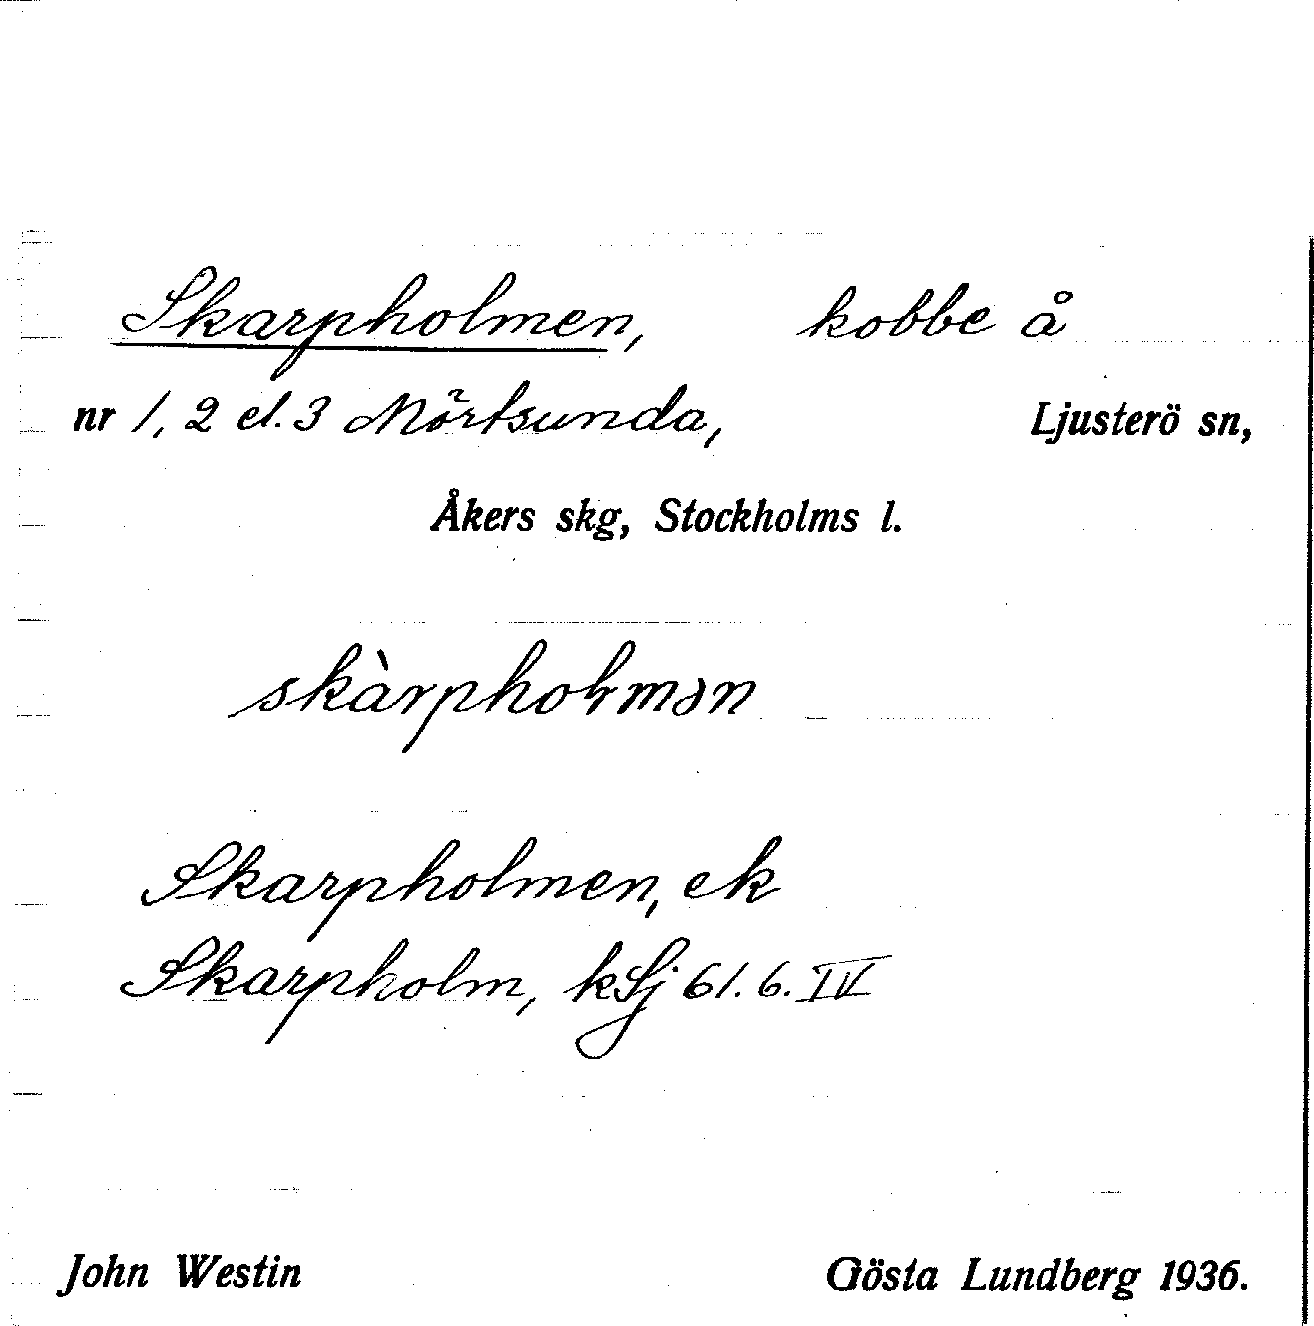 Skarpholmen, kobbe å
nr 1, 2 el. 3 Mörtsunda, Ljusterö sn,
Åkers skg, Stockholms l.
skàrpholmən
Skarpholmen, ek
Skarpholm, kSj 61. 6. IV
John Westin Gösta Lundberg 1936.